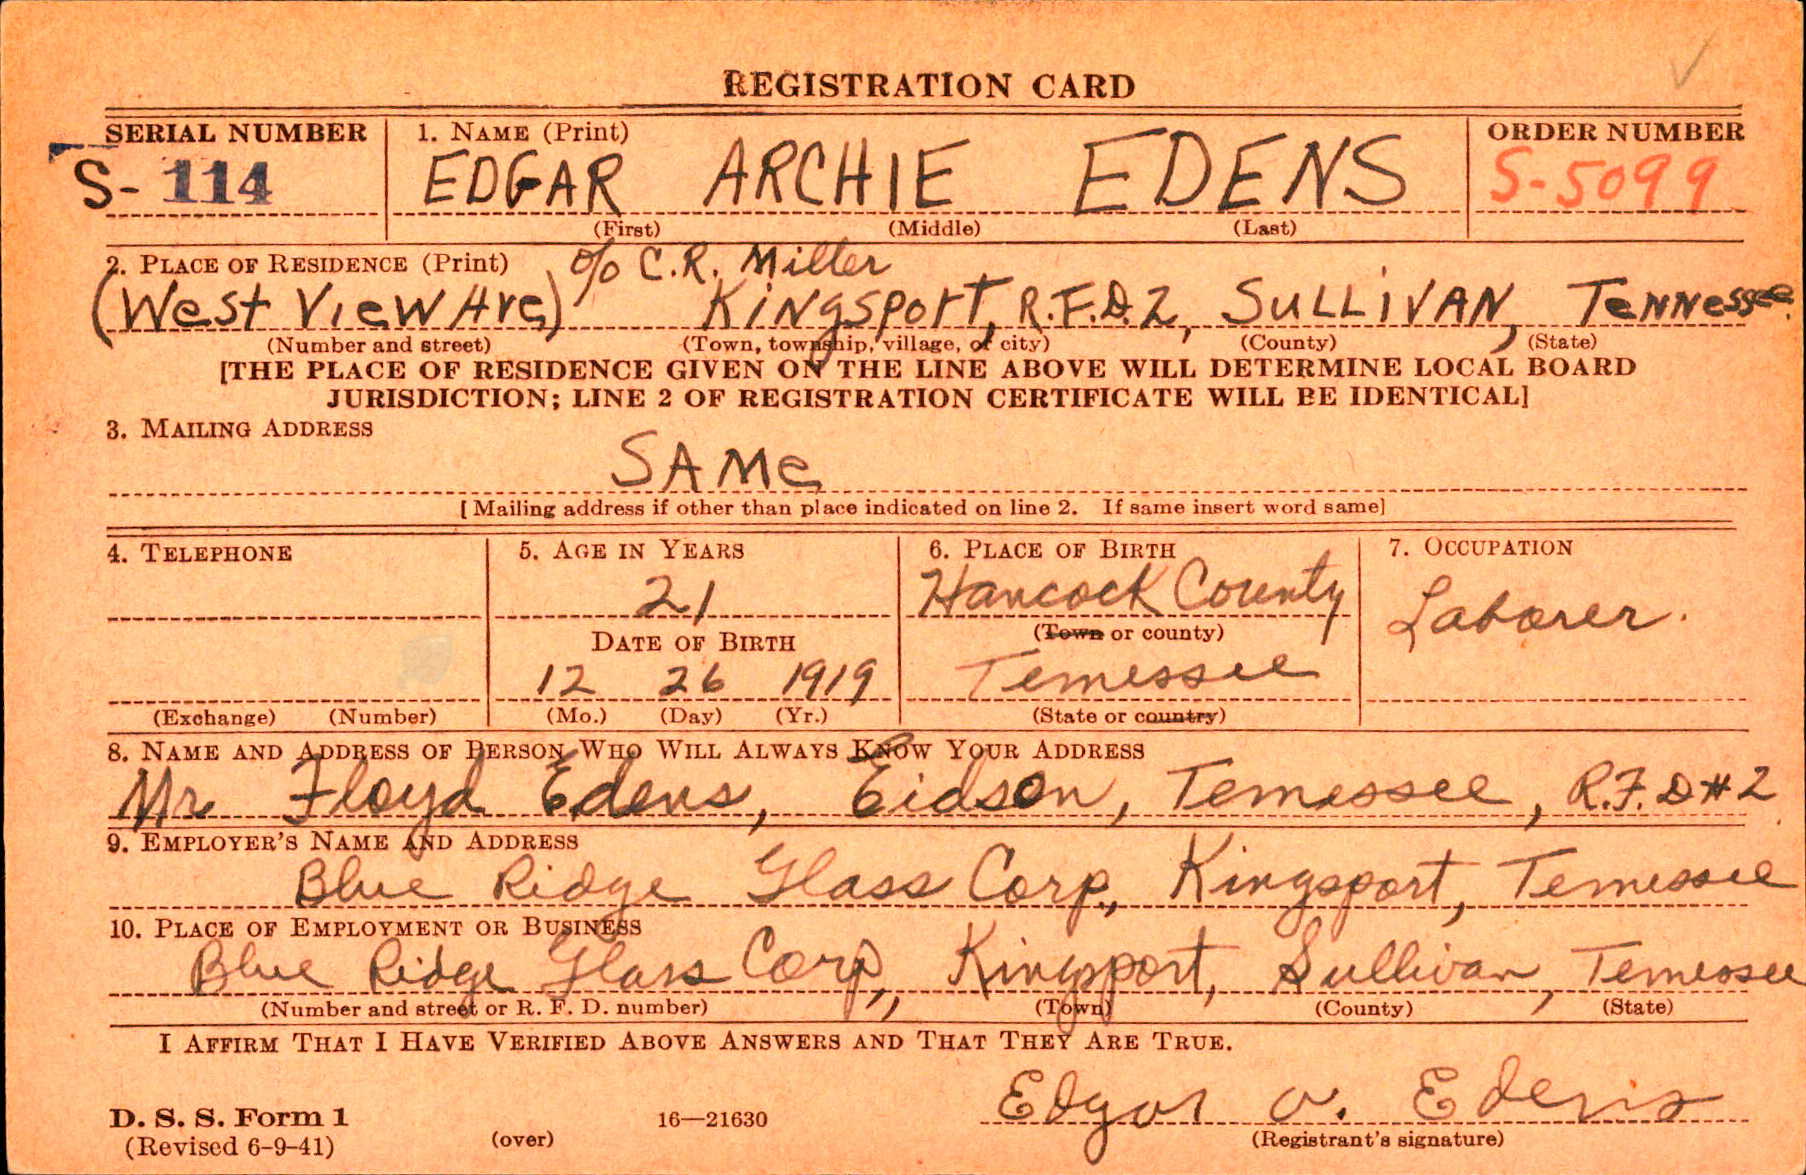 REGISTRATION CARD
SERIAL NUMBER 1. NAME (Print) ORDER NUMBER
S- 114 EDGAR ARCHIE EDENS S-5099
(First) (Middle) (Last)
2. PLACE OF RESIDENCE (Print) c/o C.R. Miller
(West View Ave) Kingsport, R.F.D. 2, SULLIVAN, TeNNessee.
(Number and street) (Town, township, village, or city) (County) (State)
[THE PLACE OF RESIDENCE GIVEN ON THE LINE ABOVE WILL DETERMINE LOCAL BOARD
JURISDICTION; LINE 2 OF REGISTRATION CERTIFICATE WILL BE IDENTICAL]
3. MAILING ADDRESS
SAMe
[Mailing address if other than place indicated on line 2. If same insert word same]
4. TELEPHONE 5. AGE IN YEARS 6. PLACE OF BIRTH 7. OCCUPATION
21 Hancock County Laborer.
DATE OF BIRTH (Town or county)
12 26 1919 Tennessee
(Exchange) (Number) (Mo.) (Day) (Yr.) (State or country)
8. NAME AND ADDRESS OF PERSON WHO WILL ALWAYS KNOW YOUR ADDRESS
Mr Floyd Edens, Eidson, Tennessee, R.F.D #2
9. EMPLOYER'S NAME AND ADDRESS
Blue Ridge Glass Corp., Kingsport, Tennessee
10. PLACE OF EMPLOYMENT OR BUSINESS
Blue Ridge Glass Corp., Kingsport, Sullivan, Tennessee
(Number and street or R. F. D. number) (Town) (County) (State)
I AFFIRM THAT I HAVE VERIFIED ABOVE ANSWERS AND THAT THEY ARE TRUE.
Edgar a. Edens
D. S. S. Form 1 16—21630
(Revised 6-9-41) (over) (Registrant's signature)